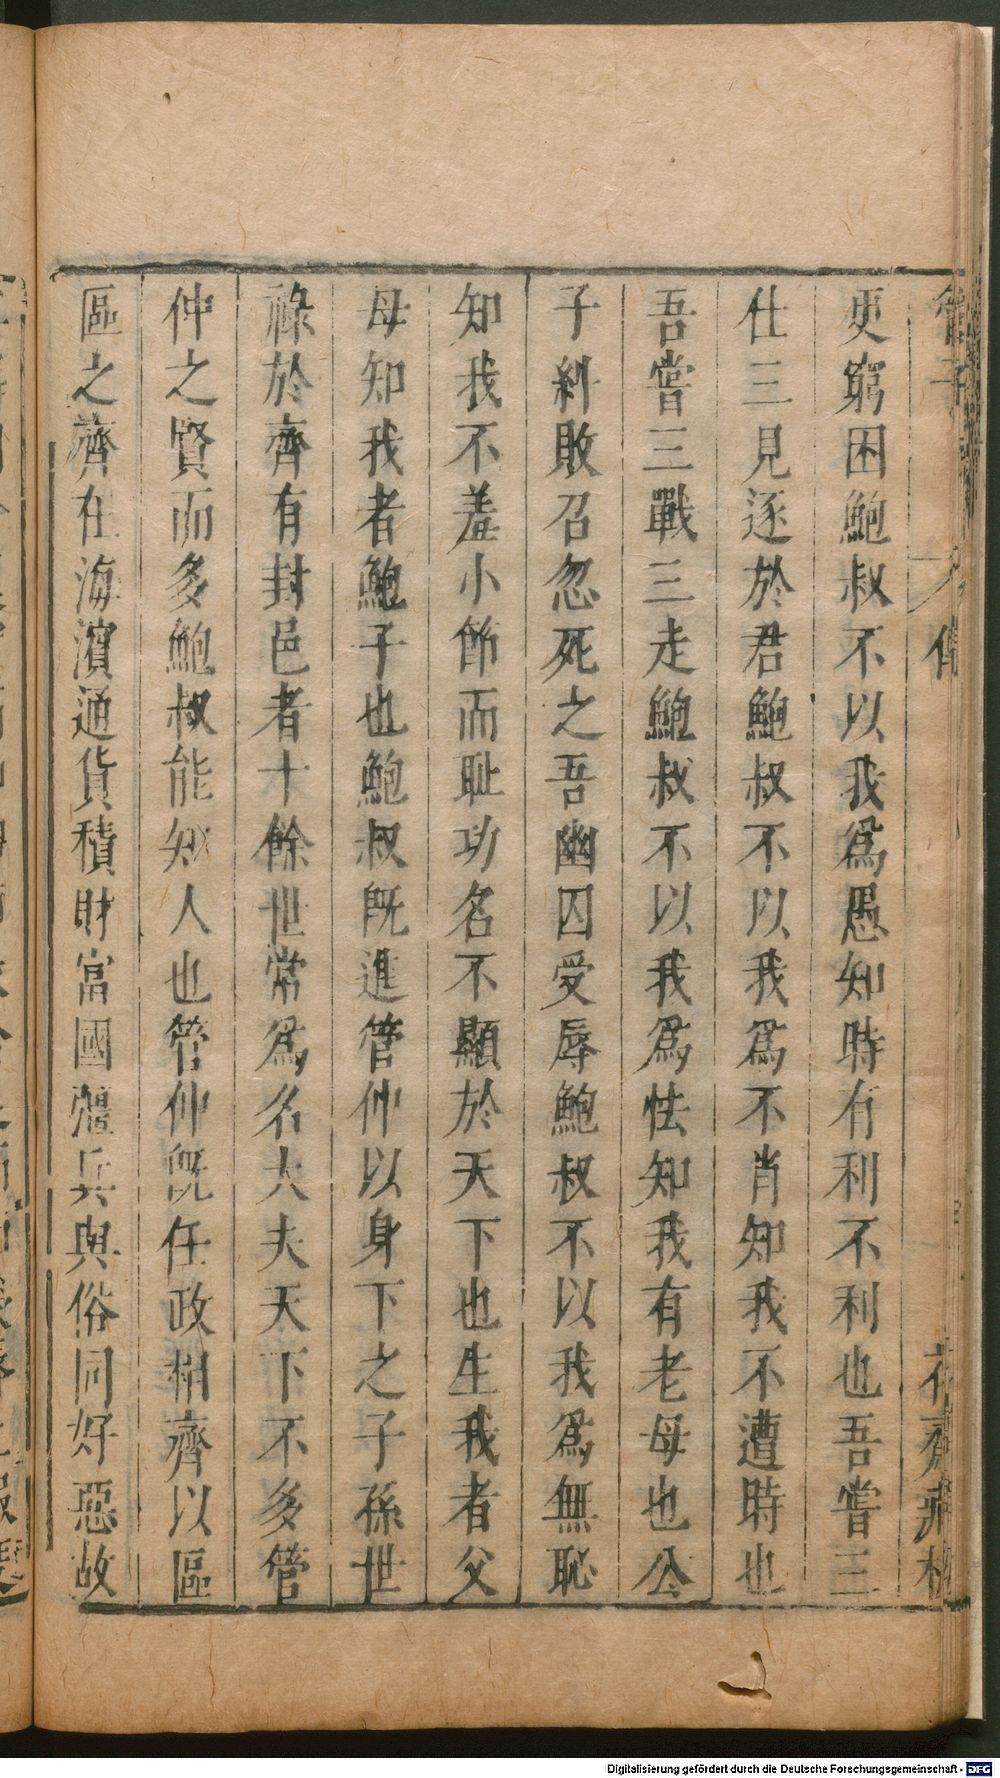 管子 傳 花齋藏板
更窮困鮑叔不以我爲愚知時有利不利也吾嘗三
仕三見逐於君鮑叔不以我爲不肖知我不遭時也
吾嘗三戰三走鮑叔不以我爲怯知我有老母也公
子糾敗召忽死之吾幽囚受辱鮑叔不以我爲無恥
知我不羞小節而耻功名不顯於天下也生我者父
母知我者鮑子也鮑叔旣進管仲以身下之子孫世
祿於齊有封邑者十餘世常爲名大夫天下不多管
仲之賢而多鮑叔能知人也管仲旣任政相齊以區
區之齊在海濱通貨積財富國彊兵與俗同好惡故
Digitalisierung gefördert durch die Deutsche Forschungsgemeinschaft - DFG